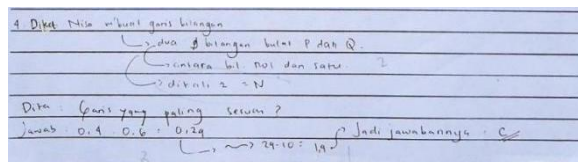 4. Diket. Nisa m'buat garis bilangan
dua bilangan bulat P dan Q.
antara bil. nol dan satu. 2
dikali 2 = N
Dita : Garis yang paling sesuai ?
Jawab : 0.4 . 0.6 = 0,24 Jadi jawabannya : C
29-10 = 19
2